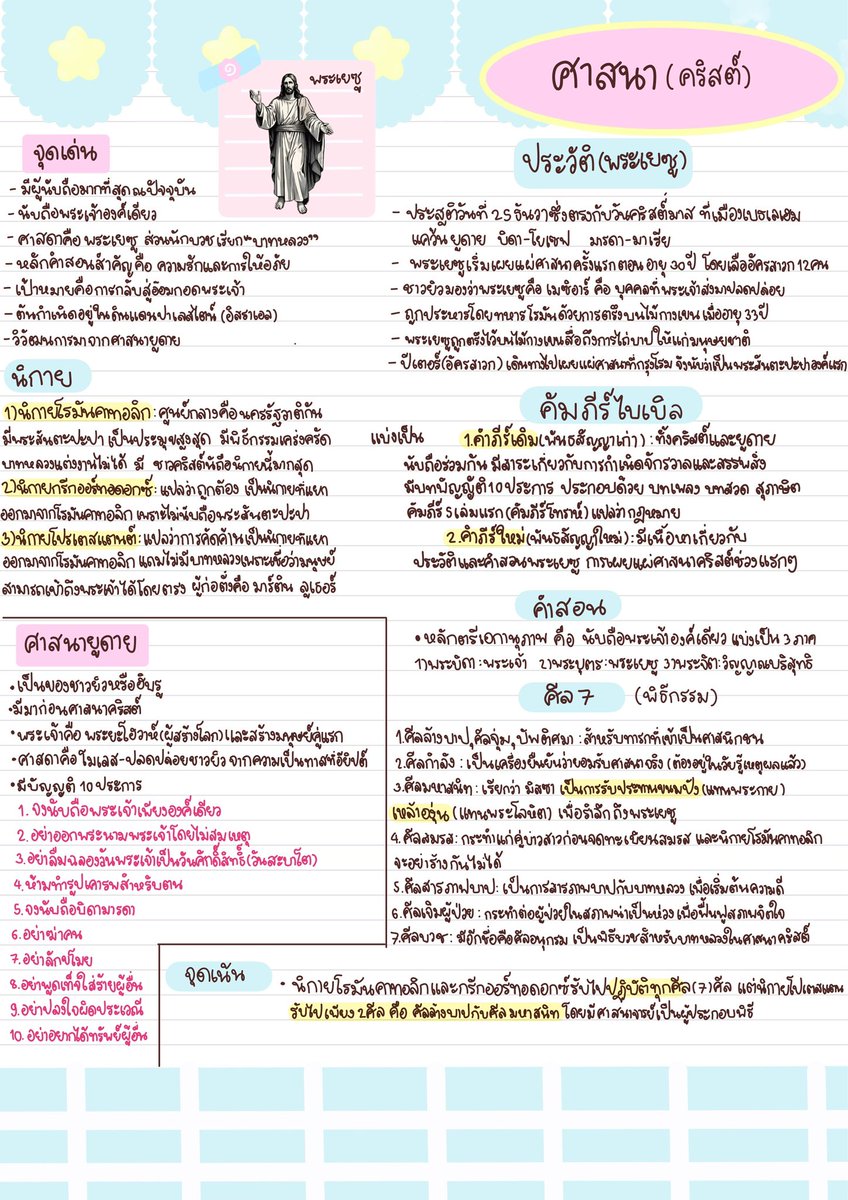 ศาสนา (คริสต์)
๑
พระเยซู
จุดเด่น
- มีผู้นับถือมากที่สุด ณ ปัจจุบัน
- นับถือพระเจ้าองค์เดียว
- ศาสดาคือ พระเยซู ส่วนนักบวช เรียก "บาทหลวง"
- หลักคำสอนสำคัญคือ ความรักและการให้อภัย
- เป้าหมายคือการกลับสู่อ้อมกอดพระเจ้า
- ต้นกำเนิดอยู่ในดินแดนปาเลสไตน์ (อิสราเอล)
- วิวัฒนการมาจากศาสนายูดาย
นิกาย
1) นิกายโรมันคาทอลิก : ศูนย์กลางคือนครรัฐวาติกัน
มีพระสันตะปะปา เป็นประมุขสูงสุด มีพิธีกรรมเคร่งครัด
บาทหลวงแต่งงานไม่ได้ มี ชาวคริสต์นับถือนิกายนี้มากสุด
2) นิกายกรีกออร์ทอดอกซ์ : แปลว่าถูกต้อง เป็นนิกายที่แยก
ออกมาจากโรมันคาทอลิก เพราะไม่นับถือพระสันตะปะปา
3) นิกายโปรเตสแตนต์ : แปลว่าการคัดค้าน เป็นนิกายที่แยก
ออกมาจากโรมันคาทอลิก แถมไม่มีบาทหลวงเพราะเชื่อว่ามนุษย์
สามารถเข้าถึงพระเจ้าได้โดยตรง ผู้ก่อตั้งคือ มาร์ติน ลูเธอร์
ประวัติ (พระเยซู)
- ประสูติวันที่ 25 ธันวา ซึ่งตรงกับวันคริสต์มาส ที่เมืองเบธเลเฮม
แคว้น ยูดาย บิดา-โยเซฟ มารดา-มาเรีย
- พระเยซูเริ่มเผยแผ่ศาสนาครั้งแรกตอน อายุ 30 ปี โดยเลืออัครสาวก 12 คน
- ชาวยิวมองว่าพระเยซูคือ เมซิอาร์ คือ บุคคลที่พระเจ้าส่งมาปลดปล่อย
- ถูกประหารโดยทหารโรมันด้วยการตรึงบนไม้กางเขน เมื่ออายุ 33 ปี
- พระเยซูถูกตรึงไว้บนไม้กางเขนสื่อถึงการไถ่บาปให้แก่มนุษยชาติ
- ปีเตอร์(อัครสาวก) เดินทางไปเผยแผ่ศาสนาที่กรุงโรม จึงนับว่าเป็นพระสันตะปะปาองค์แรก
คัมภีร์ไบเบิล
แบ่งเป็น 1.คำภีร์เดิม (พันธสัญญาเก่า) : ทั้งคริสต์และยูดาย
นับถือร่วมกัน มีสาระเกี่ยวกับการกำเนิดจักรวาลและสรรพสิ่ง
มีบทบัญญัติ 10 ประการ ประกอบด้วย บทเพลง บทสวด สุภาษิต
คัมภีร์ 5 เล่มแรก (คัมภีร์โทราห์) แปลว่า กฎหมาย
2.คำภีร์ใหม่ (พันธสัญญาใหม่) : มีเนื้อหาเกี่ยวกับ
ประวัติและคำสอนพระเยซู การเผยแผ่ศาสนาคริสต์ช่วงแรกๆ
คำสอน
• หลักตรีเอกานุภาพ คือ นับถือพระเจ้าองค์เดียว แบ่งเป็น 3 ภาค
1)พระบิดา : พระเจ้า 2)พระบุตร : พระเยซู 3)พระจิต : วิญญาณบริสุทธิ
ศีล 7 (พิธีกรรม)
1.ศีลล้างบาป, ศีลจุ่ม, บัพติศมา : สำหรับทารกที่เข้าเป็นศาสนิกชน
2.ศีลกำลัง : เป็นเครื่องยืนยันว่ายอมรับศาสนาจริง (ต้องอยู่ในวัยรู้เหตุผลแล้ว)
3.ศีลมหาสนิท : เรียกว่า มิสซา เป็นการรับประทานขนมปัง (แทนพระกาย)
เหล้าองุ่น (แทนพระโลหิต) เพื่อรำลึกถึงพระเยซู
4.ศีลสมรส : กระทำแก่คู่บ่าวสาวก่อนจดทะเบียนสมรส และนิกายโรมันคาทอลิก
จะอย่าร้างกันไม่ได้
5.ศีลสารภาพบาป : เป็นการสารภาพบาปกับบาทหลวง เพื่อเริ่มต้นความดี
6.ศีลเจิมผู้ป่วย : กระทำต่อผู้ป่วยในสภาพน่าเป็นห่วง เพื่อฟื้นฟูสภาพจิตใจ
7.ศีลบวช : มีอีกชื่อคือศีลอนุกรม เป็นพิธีบวชสำหรับบาทหลวงในศาสนาคริสต์
ศาสนายูดาย
• เป็นของชาวยิวหรือฮิบรู
• มีมาก่อนศาสนาคริสต์
• พระเจ้าคือ พระยะโฮวาห์ (ผู้สร้างโลก) และสร้างมนุษย์คู่แรก
• ศาสดาคือ โมเสส-ปลดปล่อยชาวยิว จากความเป็นทาสที่อียิปต์
• มีบัญญัติ 10 ประการ
1. จงนับถือพระเจ้าเพียงองค์เดียว
2. อย่าออกพระนามพระเจ้าโดยไม่สมเหตุ
3. อย่าลืมฉลองวันพระเจ้าเป็นวันศักดิ์สิทธิ์ (วันสะบาโต)
4. ห้ามทำรูปเคารพสำหรับตน
5. จงนับถือบิดามารดา
6. อย่าฆ่าคน
7. อย่าลักขโมย
8. อย่าพูดเท็จใส่ร้ายผู้อื่น
9. อย่าปลงใจผิดประเวณี
10. อย่าอยากได้ทรัพย์ผู้อื่น
จุดเน้น
• นิกายโรมันคาทอลิกและกรีกออร์ทอดอกซ์รับไปปฏิบัติทุกศีล (7) ศีล แต่นิกายโปเตสแตน
รับไปเพียง 2 ศีล คือ ศีลล้างบาปกับศีลมหาสนิท โดยมีศาสนาจารย์เป็นผู้ประกอบพิธี